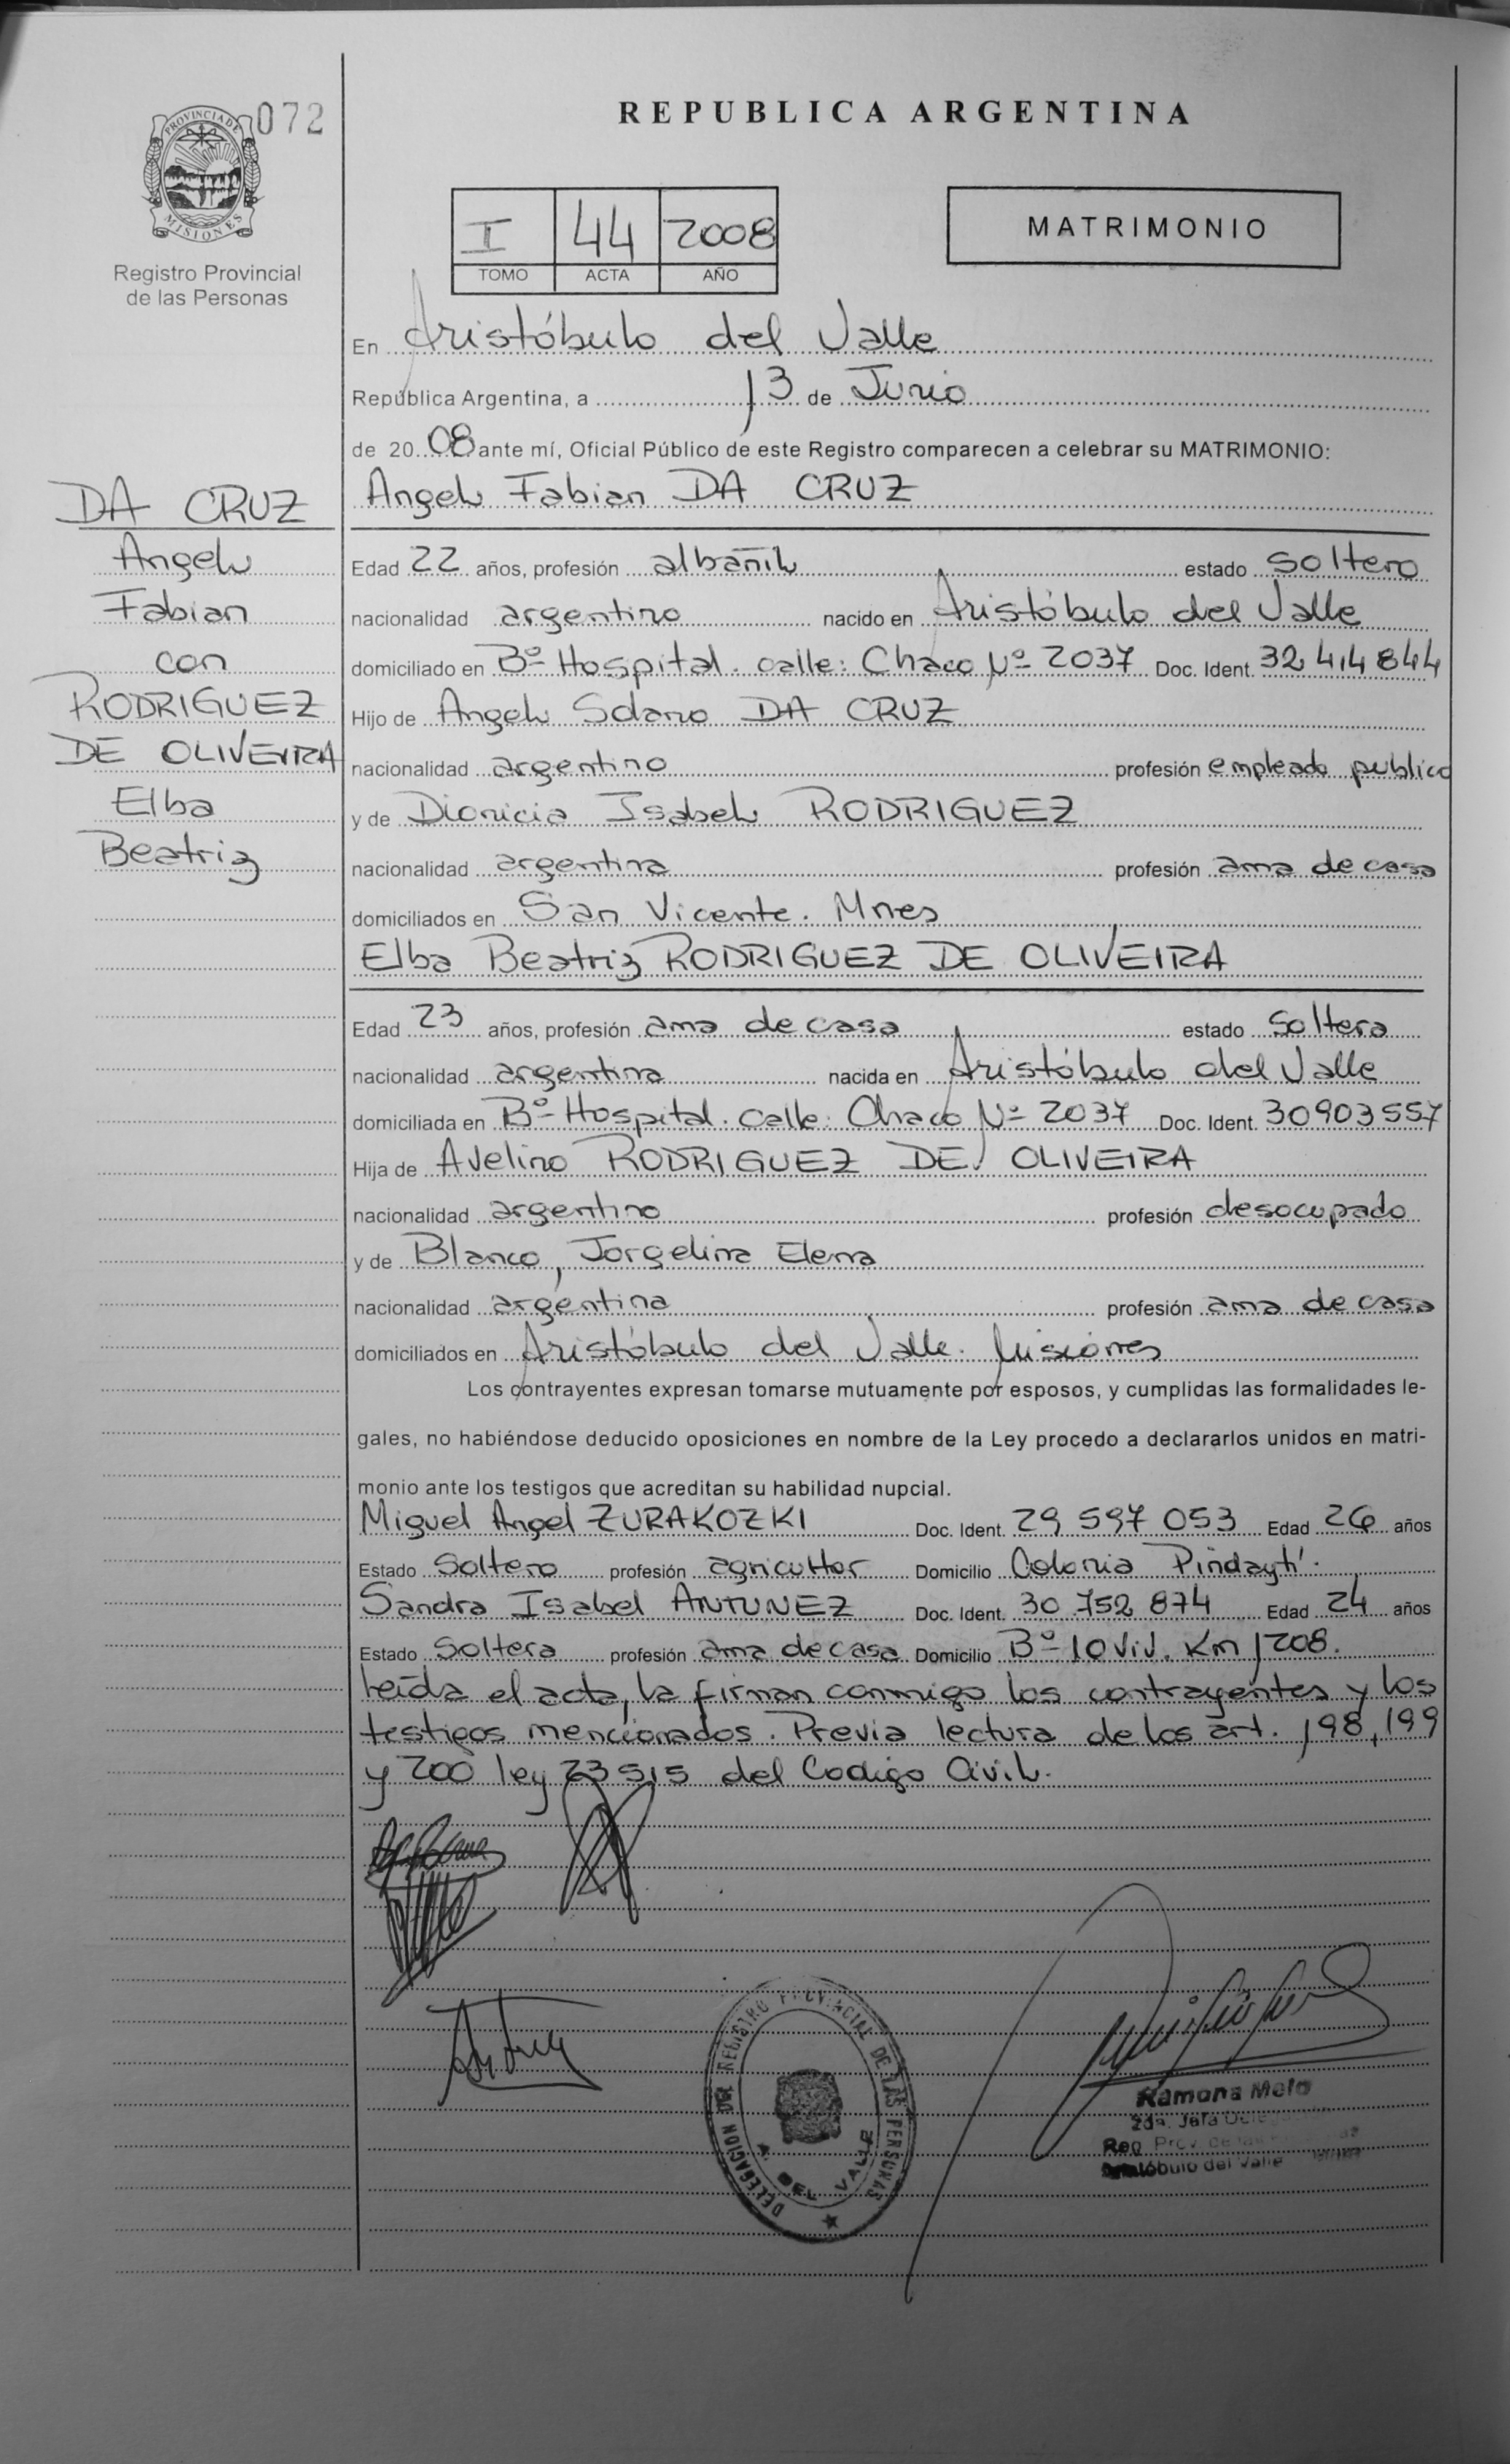 072
PROVINCIA DE
MISIONES
Registro Provincial
de las Personas
REPUBLICA ARGENTINA
I 44 2008
TOMO ACTA AÑO
MATRIMONIO
En Aristóbulo del Valle
República Argentina, a 13 de Junio
de 20 08 ante mí, Oficial Público de este Registro comparecen a celebrar su MATRIMONIO:
DA CRUZ
Angel
Fabian
con
RODRIGUEZ
DE OLIVEIRA
Elba
Beatriz
Angel Fabian DA CRUZ
Edad 22 años, profesión albañil estado soltero
nacionalidad argentino nacido en Aristóbulo del Valle
domiciliado en Bº Hospital. calle: Chaco Nº 2037 Doc. Ident. 32414844
Hijo de Angel Solano DA CRUZ
nacionalidad argentino profesión empleado publico
y de Dionicia Isabel RODRIGUEZ
nacionalidad argentina profesión ama de casa
domiciliados en San Vicente. Mnes
Elba Beatriz RODRIGUEZ DE OLIVEIRA
Edad 23 años, profesión ama de casa estado soltera
nacionalidad argentina nacida en Aristóbulo del Valle
domiciliada en Bº Hospital. calle: Chaco Nº 2037 Doc. Ident. 30903557
Hija de Avelino RODRIGUEZ DE OLIVEIRA
nacionalidad argentino profesión desocupado
y de Blanco, Jorgelina Elena
nacionalidad argentina profesión ama de casa
domiciliados en Aristóbulo del Valle. Misiones
Los contrayentes expresan tomarse mutuamente por esposos, y cumplidas las formalidades le-
gales, no habiéndose deducido oposiciones en nombre de la Ley procedo a declararlos unidos en matri-
monio ante los testigos que acreditan su habilidad nupcial.
Miguel Angel ZURAKOZKI Doc. Ident. 29 597 053 Edad 26 años
Estado Soltero profesión agricultor Domicilio Colonia Pindaytí.
Sandra Isabel ANTUNEZ Doc. Ident. 30 752 874 Edad 24 años
Estado Soltera profesión ama de casa Domicilio Bº 10 Viv. Km 1208.
leída el acta, la firman conmigo los contrayentes y los
testigos mencionados. Previa lectura de los art. 198, 199
y 200 ley 23515 del Codigo Civil.
DELEGACION DEL REGISTRO PROVINCIAL DE LAS PERSONAS
A. DEL VALLE
Ramona Melo
2da. Jefa
Reg. Prov. de las
Aristóbulo del Valle